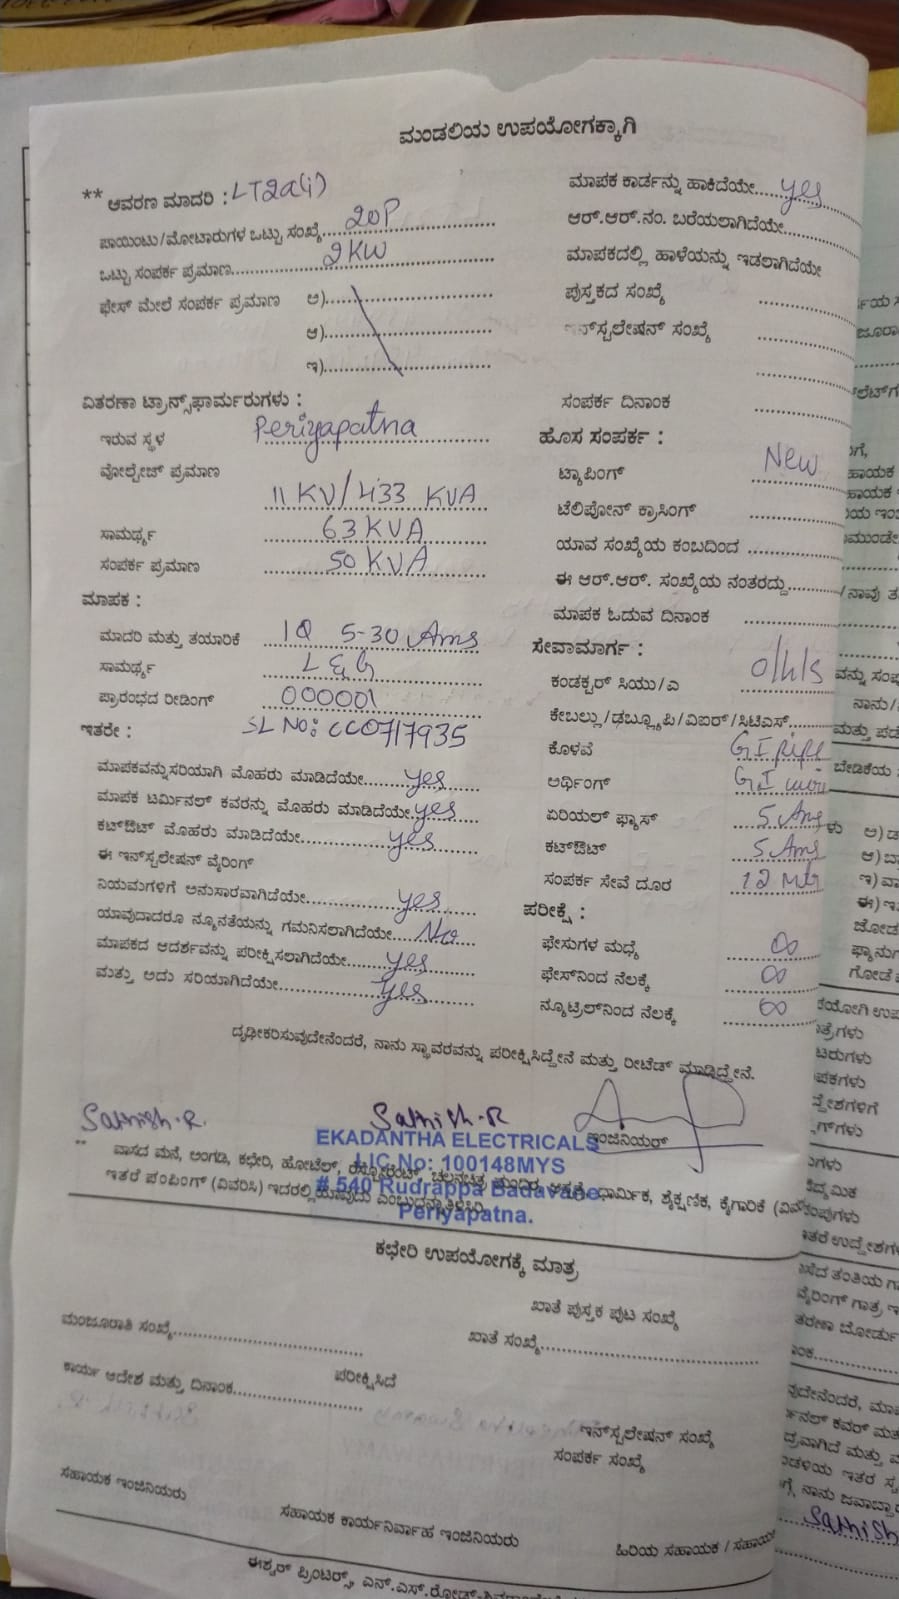 ಮಂಡಲಿಯ ಉಪಯೋಗಕ್ಕಾಗಿ
** ಆವರಣ ಮಾದರಿ : LT2a(i)
ಪಾಯಿಂಟು/ಮೋಟಾರುಗಳ ಒಟ್ಟು ಸಂಖ್ಯೆ 20P
ಒಟ್ಟು ಸಂಪರ್ಕ ಪ್ರಮಾಣ 2KW
ಫೇಸ್ ಮೇಲೆ ಸಂಪರ್ಕ ಪ್ರಮಾಣ ಅ)
ಆ)
ಇ)
ವಿತರಣಾ ಟ್ರಾನ್ಸ್‌ಫಾರ್ಮರುಗಳು :
ಇರುವ ಸ್ಥಳ Periyapatna
ವೋಲ್ಟೇಜ್ ಪ್ರಮಾಣ
11 KV/433 KVA
ಸಾಮರ್ಥ್ಯ 63 KVA
ಸಂಪರ್ಕ ಪ್ರಮಾಣ 50 KVA
ಮಾಪಕ :
ಮಾದರಿ ಮತ್ತು ತಯಾರಿಕೆ 1Q 5-30 Ams
ಸಾಮರ್ಥ್ಯ L & G
ಪ್ರಾರಂಭದ ರೀಡಿಂಗ್ 000001
ಇತರೇ : SL No: CC0717935
ಮಾಪಕವನ್ನು ಸರಿಯಾಗಿ ಮೊಹರು ಮಾಡಿದೆಯೇ yes
ಮಾಪಕ ಟರ್ಮಿನಲ್ ಕವರನ್ನು ಮೊಹರು ಮಾಡಿದೆಯೇ yes
ಕಟ್‌ಔಟ್ ಮೊಹರು ಮಾಡಿದೆಯೇ yes
ಈ ಇನ್‌ಸ್ಟಲೇಷನ್ ವೈರಿಂಗ್
ನಿಯಮಗಳಿಗೆ ಅನುಸಾರವಾಗಿದೆಯೇ yes
ಯಾವುದಾದರೂ ನ್ಯೂನತೆಯನ್ನು ಗಮನಿಸಲಾಗಿದೆಯೇ No
ಮಾಪಕದ ಆದರ್ಶವನ್ನು ಪರೀಕ್ಷಿಸಲಾಗಿದೆಯೇ yes
ಮತ್ತು ಅದು ಸರಿಯಾಗಿದೆಯೇ yes
ಮಾಪಕ ಕಾರ್ಡನ್ನು ಹಾಕಿದೆಯೇ yes
ಆರ್.ಆರ್.ನಂ. ಬರೆಯಲಾಗಿದೆಯೇ
ಮಾಪಕದಲ್ಲಿ ಹಾಳೆಯನ್ನು ಇಡಲಾಗಿದೆಯೇ
ಪುಸ್ತಕದ ಸಂಖ್ಯೆ
ಇನ್‌ಸ್ಟಲೇಷನ್ ಸಂಖ್ಯೆ
ಸಂಪರ್ಕ ದಿನಾಂಕ
ಹೊಸ ಸಂಪರ್ಕ :
ಟ್ಯಾಪಿಂಗ್ New
ಟೆಲಿಫೋನ್ ಕ್ರಾಸಿಂಗ್
ಯಾವ ಸಂಖ್ಯೆಯ ಕಂಬದಿಂದ
ಈ ಆರ್.ಆರ್. ಸಂಖ್ಯೆಯ ನಂತರದ್ದು
ಮಾಪಕ ಓದುವ ದಿನಾಂಕ
ಸೇವಾಮಾರ್ಗ :
ಕಂಡಕ್ಟರ್ ಸಿಯು/ಎ o/h/s
ಕೇಬಲ್ಲು/ಡಬ್ಲ್ಯೂಪಿ/ವಿಐಆರ್/ಸಿಟಿಎಸ್
ಕೊಳವೆ G I pipe
ಅರ್ಥಿಂಗ್ G.I
ಏರಿಯಲ್ ಫ್ಯೂಸ್ 5 Ams
ಕಟ್‌ಔಟ್ 5 Ams
ಸಂಪರ್ಕ ಸೇವೆ ದೂರ 12 Mtr
ಪರೀಕ್ಷೆ :
ಫೇಸುಗಳ ಮಧ್ಯೆ ∞
ಫೇಸ್‌ನಿಂದ ನೆಲಕ್ಕೆ ∞
ನ್ಯೂಟ್ರಲ್‌ನಿಂದ ನೆಲಕ್ಕೆ ∞
ದೃಢೀಕರಿಸುವುದೇನೆಂದರೆ, ನಾನು ಸ್ಥಾವರವನ್ನು ಪರೀಕ್ಷಿಸಿದ್ದೇನೆ ಮತ್ತು ರೀಟೆಡ್ ಮಾಡಿದ್ದೇನೆ.
Sathish.R. Sathish.R
ಇಂಜಿನಿಯರ್
EKADANTHA ELECTRICALS
LIC.No: 100148MYS
# 540 Rudrappa Badavane
Periyapatna.
** ವಾಸದ ಮನೆ, ಅಂಗಡಿ, ಕಛೇರಿ, ಹೋಟೆಲ್, ರೆಸ್ಟೋರೆಂಟ್, ಚಲನಚಿತ್ರ ಮಂದಿರ, ಆಸ್ಪತ್ರೆ, ಧಾರ್ಮಿಕ, ಶೈಕ್ಷಣಿಕ, ಕೈಗಾರಿಕೆ
ಇತರೆ ಪಂಪಿಂಗ್ (ವಿವರಿಸಿ) ಇದರಲ್ಲಿ ಯಾವುದು ಎಂಬುದನ್ನು ತಿಳಿಸಿರಿ.
ಕಛೇರಿ ಉಪಯೋಗಕ್ಕೆ ಮಾತ್ರ
ಮಂಜೂರಾತಿ ಸಂಖ್ಯೆ
ಕಾರ್ಯ ಆದೇಶ ಮತ್ತು ದಿನಾಂಕ
ಖಾತೆ ಪುಸ್ತಕ ಪುಟ ಸಂಖ್ಯೆ
ಖಾತೆ ಸಂಖ್ಯೆ
ಪರೀಕ್ಷಿಸಿದೆ
ಇನ್‌ಸ್ಟಲೇಷನ್ ಸಂಖ್ಯೆ
ಸಂಪರ್ಕ ಸಂಖ್ಯೆ
ಸಹಾಯಕ ಇಂಜಿನಿಯರು
ಸಹಾಯಕ ಕಾರ್ಯನಿರ್ವಾಹ ಇಂಜಿನಿಯರು
ಹಿರಿಯ ಸಹಾಯಕ /
ಈಶ್ವರ್ ಪ್ರಿಂಟರ್ಸ್, ಎನ್.ಎಸ್.ರೋಡ್
Sathish